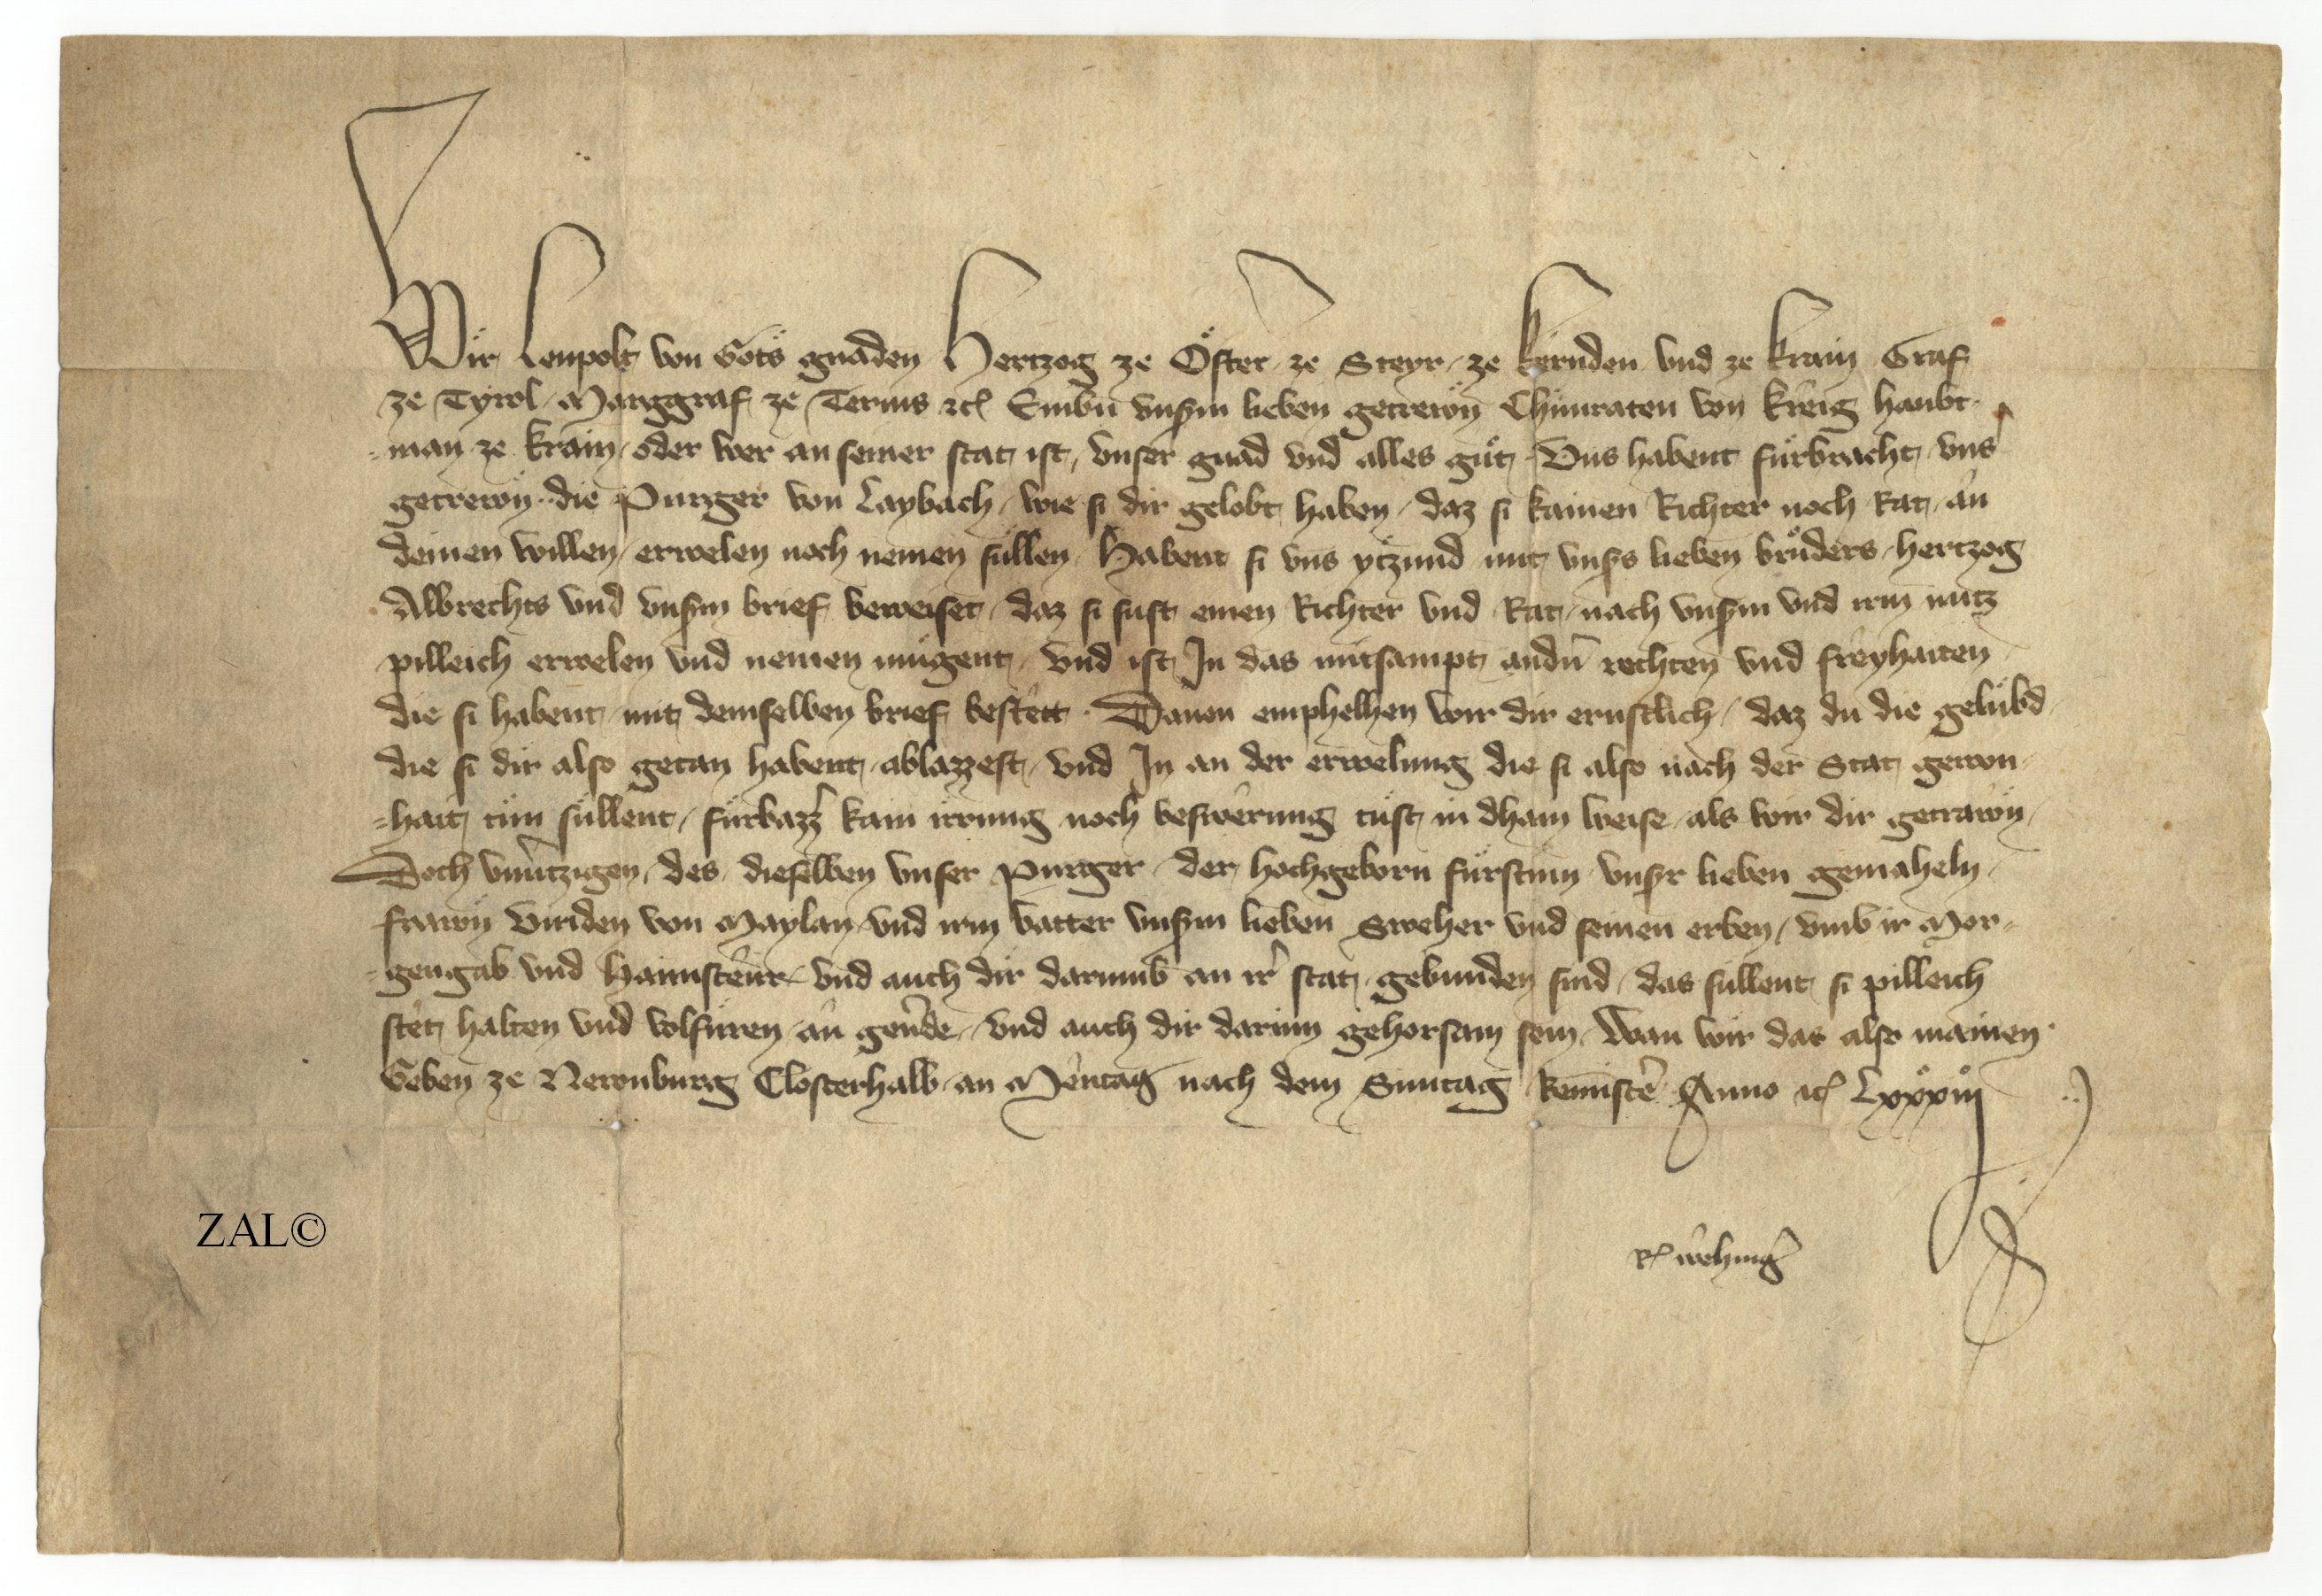 Wir Leupolt von Gots gnaden Hertzog ze Öster ze Steyr ze kernden vnd ze krain Graf
ze Tyrol Marggraf ze Teruis etc Embn vnsrm lieben getrewn Chunraten von kreig haubt
man ze krain oder wer an seiner stat ist, vnser gnad vnd alles gůt Vns habent fürbracht vns
getrewn die Purger von Laybach wie si dir gelobt haben daz si kainen Richter noch Rat an
deinen willen erwelen noch nemen süllen Habent si vns yetzund mit vnsrs lieben brůders hertzog
Albrechts vnd vnsrm brief beweiset daz si sust einen Richter vnd Rat nach vnsrm vnd irm nutz
pilleich erwelen vnd nemen mügent vnd ist In das mitsampt andrn rechten vnd freyhaiten
die si habent mit demselben brief bestett Dauon emphelhen wir dir ernstlich daz du die gelübd
die si dir also getan habent ablazzest vnd In an der erwelung die si also nach der Stat gewon
hait tůn süllent fürbazz kain irrung noch beswerung tüst in dhain weise als wir dir getrawn
Doch vnuertzigen des dieselben vnser purger der hochgeborn fürstinn vnsrr lieben gemaheln
frawn Viriden von Maylan vnd irm vatter vnsrm lieben Sweher vnd seinen erben vmb ir Mor
gengab vnd Haimsteur vnd auch dir darumb an irr stat gebunden sind das süllent si pilleich
stet halten vnd volfüren an geuerde vnd auch dir darinn gehorsam sein Wan wir das also mainen
Geben ze Newnburg Closterhalb an Mentag nach dem Sunntag Reministere Anno etc Lxxxiii
R wehinger
ZAL©